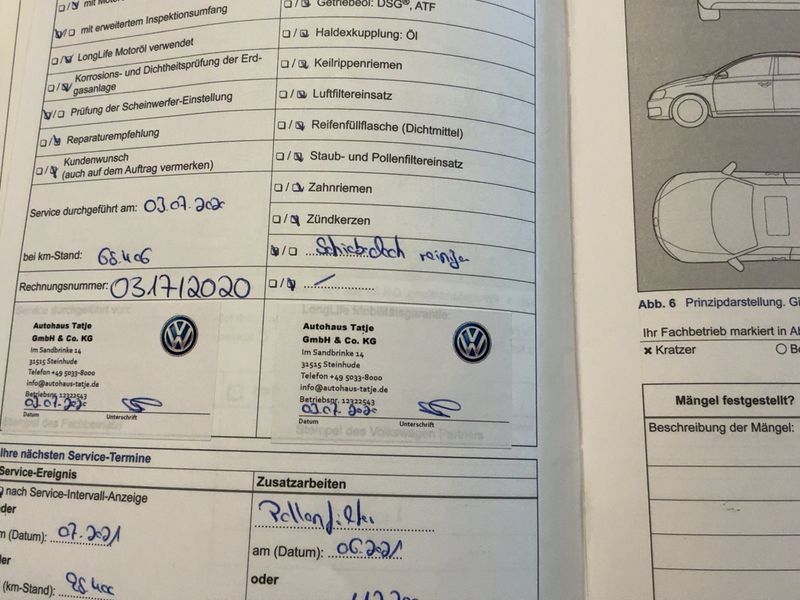 mit
Getriebeöl: DSG®, ATF
mit erweitertem Inspektionsumfang
Haldexkupplung: Öl
LongLife Motoröl verwendet
Keilrippenriemen
Korrosions- und Dichtheitsprüfung der Erd-
gasanlage
Luftfiltereinsatz
Prüfung der Scheinwerfer-Einstellung
Reifenfüllflasche (Dichtmittel)
Reparaturempfehlung
Staub- und Pollenfiltereinsatz
Kundenwunsch
(auch auf dem Auftrag vermerken)
Zahnriemen
Service durchgeführt am: 03.07.2020
Zündkerzen
bei km-Stand: 68.406
Schiebedach reinige
Rechnungsnummer: 0317/2020
Service durchgeführt von:
LongLife Mobilitätsgarantie:
Autohaus Tatje
GmbH & Co. KG
Im Sandbrinke 14
31515 Steinhude
Telefon +49 5033-8000
info@autohaus-tatje.de
Betriebsnr. 12322543
03.07.2020
Datum Unterschrift
Autohaus Tatje
GmbH & Co. KG
Im Sandbrinke 14
31515 Steinhude
Telefon +49 5033-8000
info@autohaus-tatje.de
Betriebsnr. 12322543
03.07.2020
Datum Unterschrift
Stempel des Fachbetriebs
Stempel des Volkswagen Partners
Ihre nächsten Service-Termine
Service-Ereignis
nach Service-Intervall-Anzeige
oder
am (Datum): 07.2021
oder
(km-Stand): 98.400
Zusatzarbeiten
Pollenfilter
am (Datum): 06.2021
oder
Abb. 6 Prinzipdarstellung.
Ihr Fachbetrieb markiert in
Kratzer
Mängel festgestellt?
Beschreibung der Mängel: